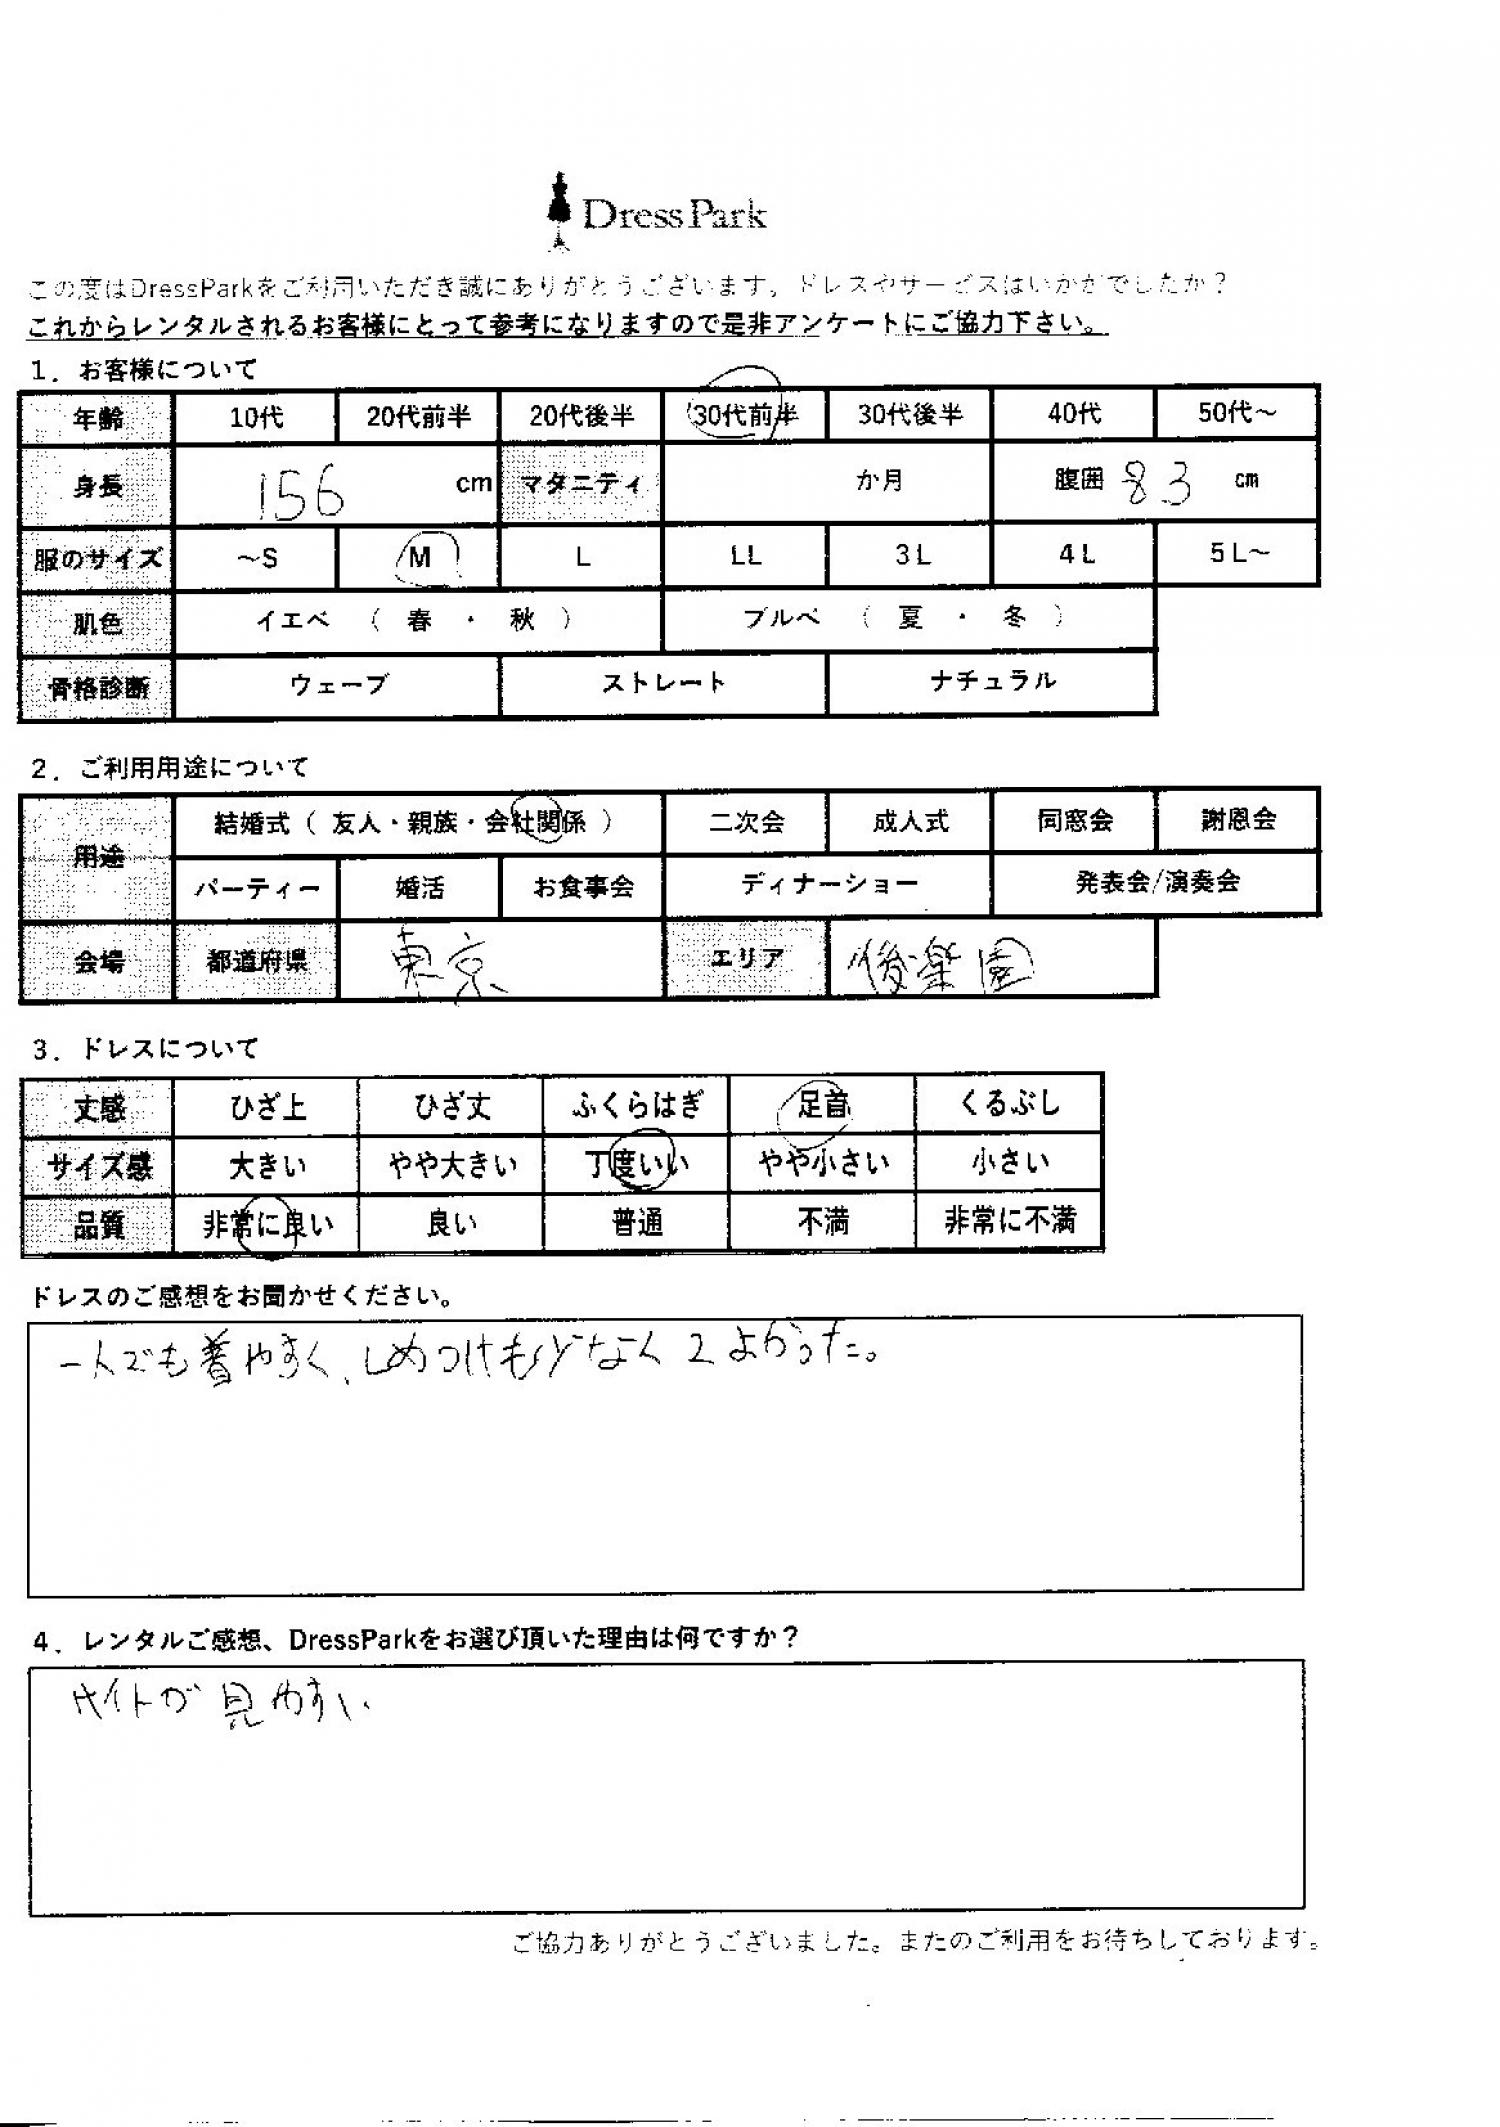 DressPark
この度はDressParkをご利用いただき誠にありがとうございます。ドレスやサービスはいかがでしたか？
これからレンタルされるお客様にとって参考になりますので是非アンケートにご協力下さい。
1．お客様について
年齢 10代 20代前半 20代後半 30代前半 30代後半 40代 50代～
身長 156 cm マタニティ か月 腹囲 83 cm
服のサイズ ～S M L LL 3L 4L 5L～
肌色 イエベ （ 春 ・ 秋 ） ブルベ （ 夏 ・ 冬 ）
骨格診断 ウェーブ ストレート ナチュラル
2．ご利用用途について
用途 結婚式（ 友人・親族・会社関係 ） 二次会 成人式 同窓会 謝恩会
パーティー 婚活 お食事会 ディナーショー 発表会/演奏会
会場 都道府県 東京 エリア 後楽園
3．ドレスについて
丈感 ひざ上 ひざ丈 ふくらはぎ 足首 くるぶし
サイズ感 大きい やや大きい 丁度いい やや小さい 小さい
品質 非常に良い 良い 普通 不満 非常に不満
ドレスのご感想をお聞かせください。
一人でも着やすく、しめつけもなくてよかった。
4．レンタルご感想、DressParkをお選び頂いた理由は何ですか？
サイトが見やすい
ご協力ありがとうございました。またのご利用をお待ちしております。